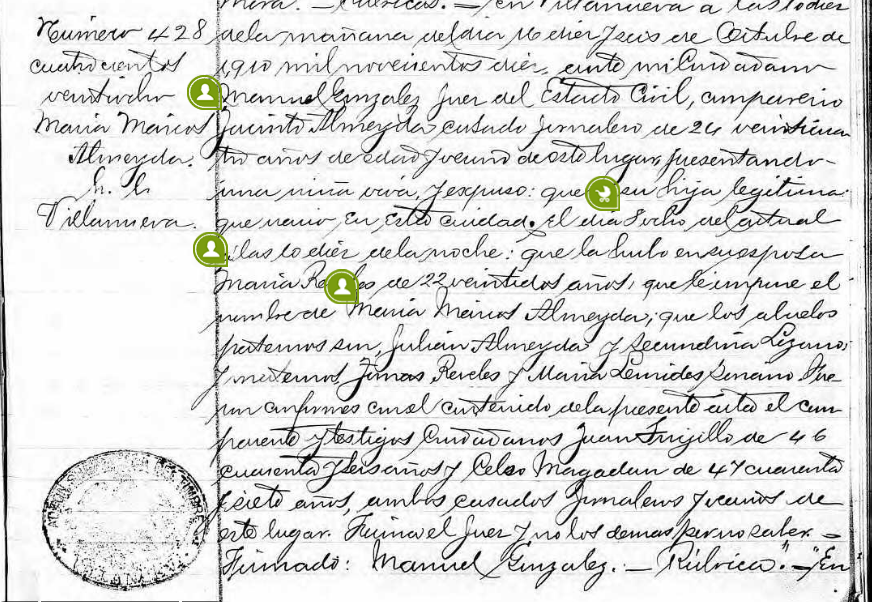 Mora. — Rúbricas. — En Villanueva a las 10 diez
Número 428
cuatrocientos
ventiocho
María Marcos
Almeyda.
h. l.
Villanueva.
de la mañana del dia 16 diez y seis de Octubre de
1,910 mil novecientos diez, ante mi Ciudadano
Manuel Gonzalez Juez del Estado Civil, compareció
Jacinto Almeyda, casado jornalero de 24 veinticua
tro años de edad y vecino de este lugar, presentando
una niña viva, y expuso: que su hija legítima
que nació en esta ciudad. El día 8 ocho del actual
a las 10 diez de la noche: que la hubo en su esposa
María Reveles de 22 veintidos años, que le impune el
nombre de María Marcos Almeyda; que los abuelos
paternos son, Julian Almeyda y Secundina Lozano,
y maternos, Jimas Reveles y María Leonides Soriano. Que
ron conformes con el contenido de la presente acta el com
parente y testigos Ciudadanos Juan Trujillo de 46
cuarenta y seis años y Celso Magadan de 47 cuarenta
y siete años, ambos casados jornaleros y vecinos de
este lugar. Firma el Juez y no los demas por no saber. —
Firmado: Manuel Gonzalez. — Rúbrica". — "En